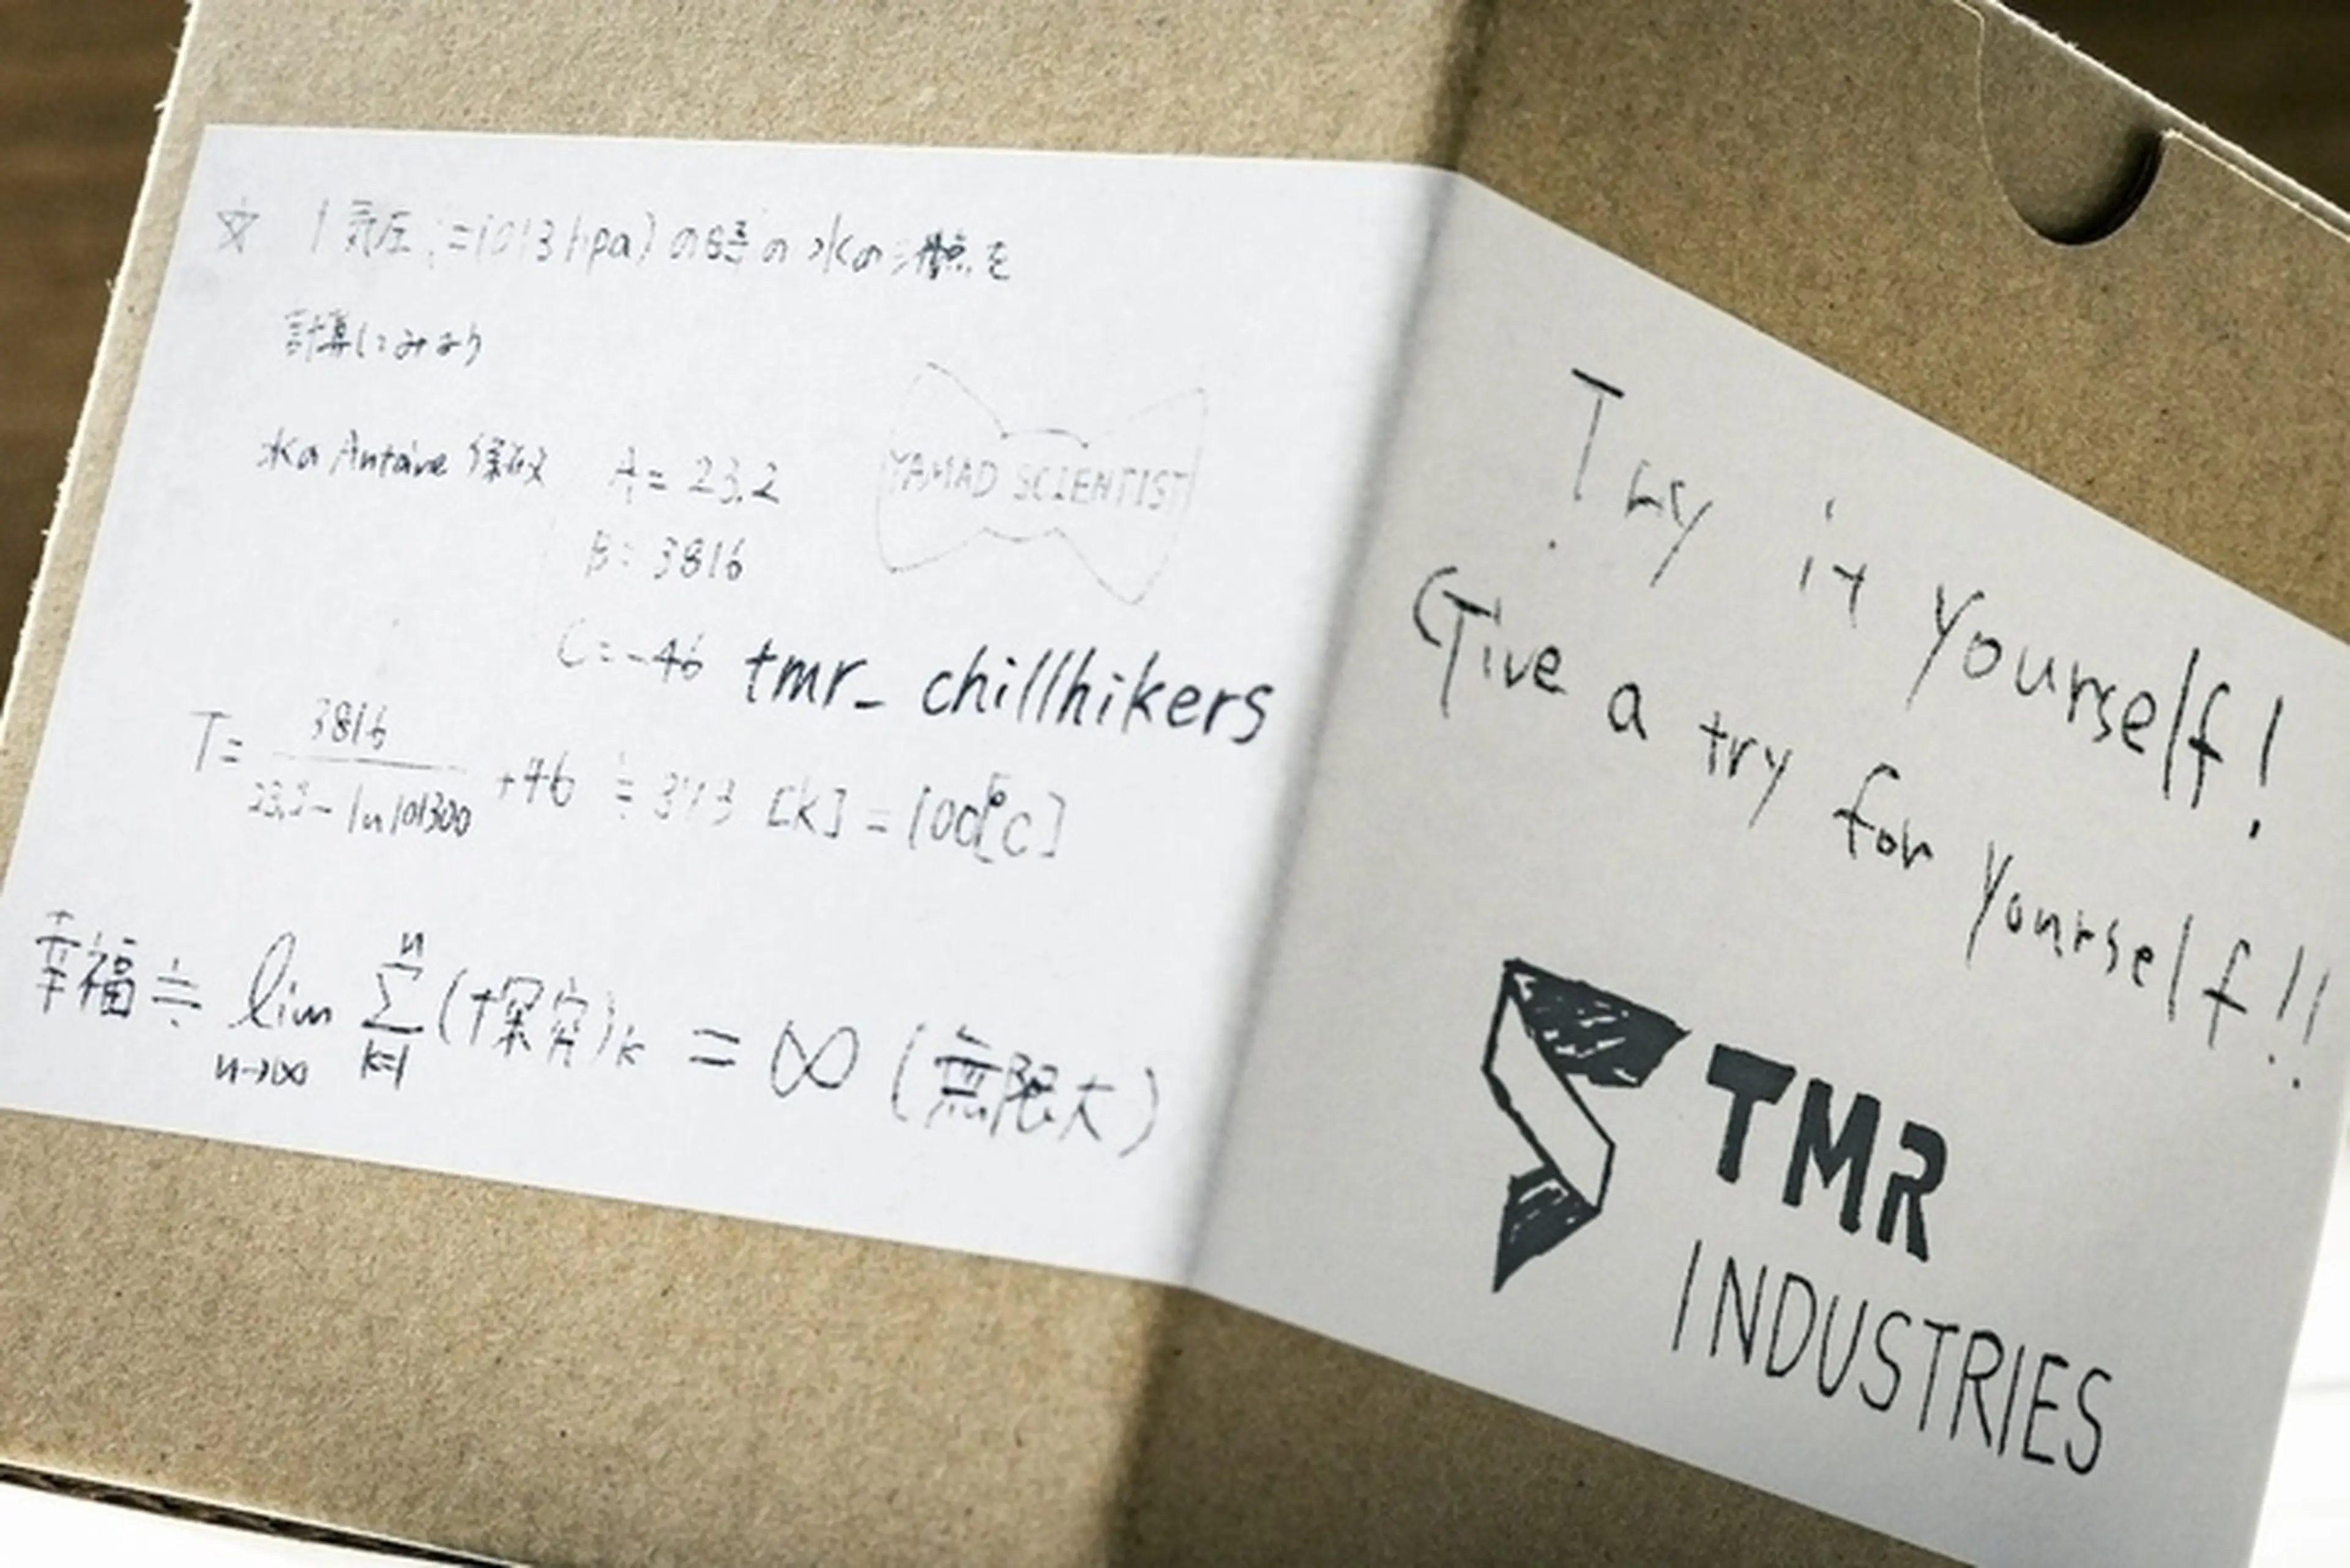 ☆ 1気圧(=1013hpa)の時の水の沸点を
計算してみよう
水の Antoine 係数 A = 23.2
B = 3816
C = -46
YAMAD SCIENTIST
tmr_chillhikers
T = 3816 / (23.2 - ln 101300) + 46 ≒ 373 [K] = 100[℃]
幸福 ≒ lim n→∞ Σ k=1 n (探究)k = ∞ (無限大)
Try it yourself!
Give a try for yourself!!
TMR
INDUSTRIES